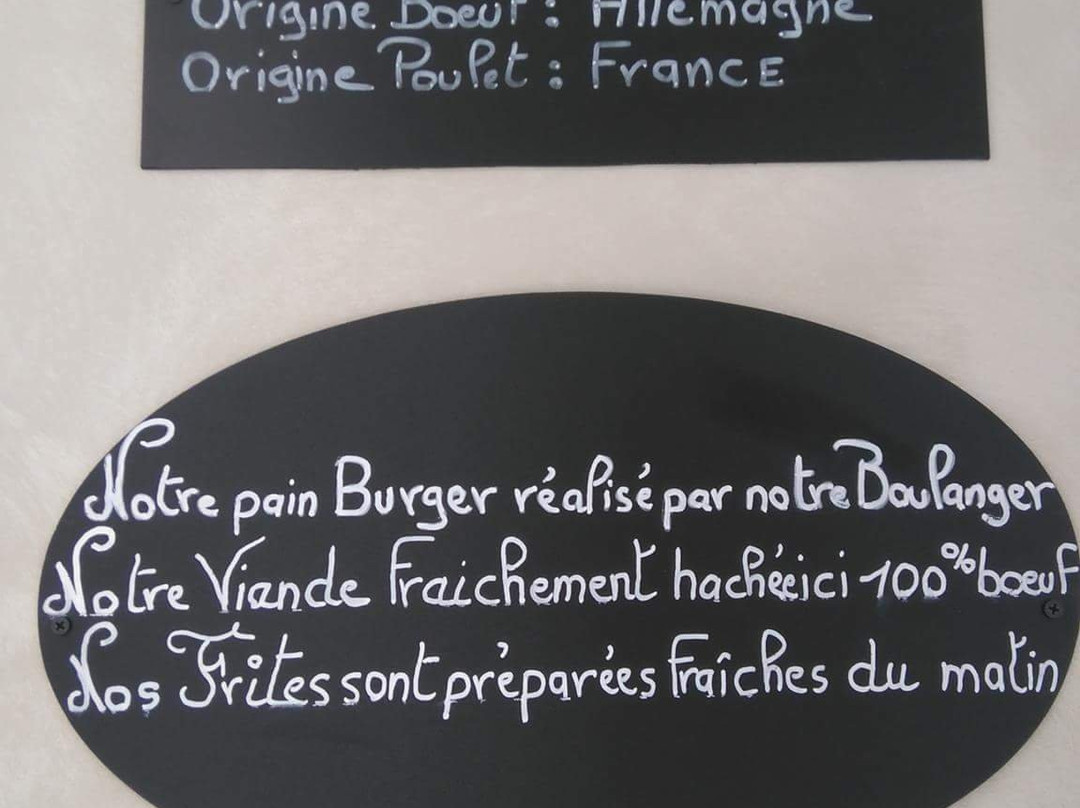 Origine Boeuf : Allemagne
Origine Poulet : France
Notre pain Burger réalisé par notre Boulanger
Notre Viande Fraichement hachéeici 100% boeuf
Nos Frites sont préparées Fraîches du matin